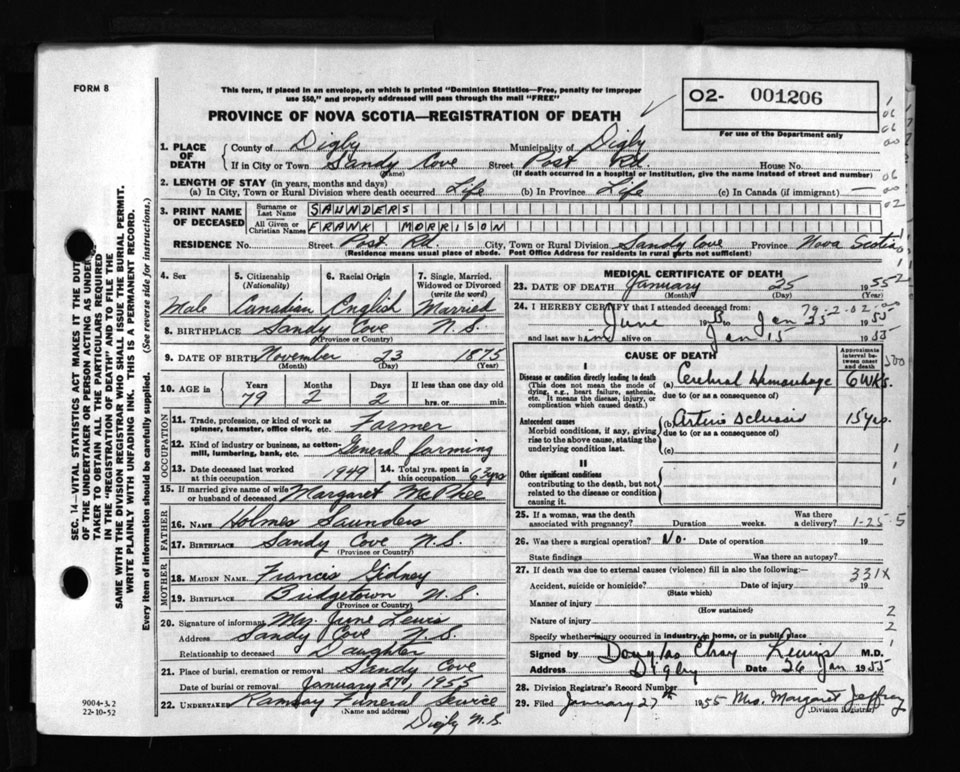 FORM 8
This form, if placed in an envelope, on which is printed "Dominion Statistics—Free, penalty for improper
use $50," and properly addressed will pass through the mail "FREE"
PROVINCE OF NOVA SCOTIA—REGISTRATION OF DEATH
O2- 001206
For use of the Department only
1. PLACE OF DEATH County of Digby Municipality of Digby
If in City or Town Sandy Cove (Name) Street Post Rd. House No.
(If death occurred in a hospital or institution, give the name instead of street and number)
2. LENGTH OF STAY (in years, months and days)
(a) In City, Town or Rural Division where death occurred Life (b) In Province Life (c) In Canada (if immigrant) —
3. PRINT NAME OF DECEASED Surname or Last Name SAUNDERS
All Given or Christian Names FRANK MORRISON
RESIDENCE No. Street Post Rd. City, Town or Rural Division Sandy Cove Province Nova Scotia
(Residence means usual place of abode. Post Office Address for residents in rural parts not sufficient)
4. Sex Male
5. Citizenship (Nationality) Canadian
6. Racial Origin English
7. Single, Married, Widowed or Divorced (write the word) Married
8. BIRTHPLACE Sandy Cove N.S.
(Province or Country)
9. DATE OF BIRTH November 23 1875
(Month) (Day) (Year)
10. AGE in Years Months Days If less than one day old
79 2 2 hrs. or min.
OCCUPATION
11. Trade, profession, or kind of work as spinner, teamster, office clerk, etc. Farmer
12. Kind of industry or business, as cotton-mill, lumbering, bank, etc. General farming
13. Date deceased last worked at this occupation 1949 14. Total yrs. spent in this occupation 63 yrs
15. If married give name of wife or husband of deceased Margaret McPhee
FATHER
16. NAME Holmes Saunders
17. BIRTHPLACE Sandy Cove N.S.
(Province or Country)
MOTHER
18. MAIDEN NAME Francis Gidney
19. BIRTHPLACE Bridgetown N.S.
(Province or Country)
20. Signature of informant Mrs. June Lewis
Address Sandy Cove N.S.
Relationship to deceased Daughter
21. Place of burial, cremation or removal Sandy Cove
Date of burial or removal January 27th, 1955
22. UNDERTAKER Ramsay Funeral Service
(Name and address)
Digby N.S.
MEDICAL CERTIFICATE OF DEATH
23. DATE OF DEATH January 25 1955
(Month) (Day) (Year)
79-2-02
24. I HEREBY CERTIFY that I attended deceased from
June to Jan 25 1955
and last saw him alive on Jan 15 1955
CAUSE OF DEATH
Approximate interval between onset and death
I
Disease or condition directly leading to death
(This does not mean the mode of dying, e.g., heart failure, asthenia, etc. It means the disease, injury, or complication which caused death.)
(a) Cerebral Hemorrhage 6 WKs.
due to (or as a consequence of)
Antecedent causes
Morbid conditions, if any, giving rise to the above cause, stating the underlying condition last.
(b) Arterio Sclerosis 15 yrs.
due to (or as a consequence of)
(c)
II
Other significant conditions
contributing to the death, but not related to the disease or condition causing it.
25. If a woman, was the death associated with pregnancy? Duration weeks. Was there a delivery? 1-25-5
26. Was there a surgical operation? No. Date of operation 19
State findings Was there an autopsy?
27. If death was due to external causes (violence) fill in also the following:— 331X
Accident, suicide or homicide? Date of injury 19
(State which)
Manner of injury
(How sustained)
Nature of injury
Specify whether injury occurred in industry, in home, or in public place
Signed by Douglas Lewis M.D.
Address Digby Date 26 Jan 1955
28. Division Registrar's Record Number
29. Filed January 27th 1955 Mrs. Margaret Jeffrey
(Division Registrar)
SEC. 14—VITAL STATISTICS ACT MAKES IT THE DUTY
OF THE UNDERTAKER OR PERSON ACTING AS UNDER-
TAKER TO OBTAIN ALL THE PARTICULARS REQUIRED
IN THE "REGISTRATION OF DEATH" AND TO FILE THE
SAME WITH THE DIVISION REGISTRAR WHO SHALL ISSUE THE BURIAL PERMIT.
WRITE PLAINLY WITH UNFADING INK. THIS IS A PERMANENT RECORD.
Every item of information should be carefully supplied. (See reverse side for instructions.)
9004-3.2
22-10-52